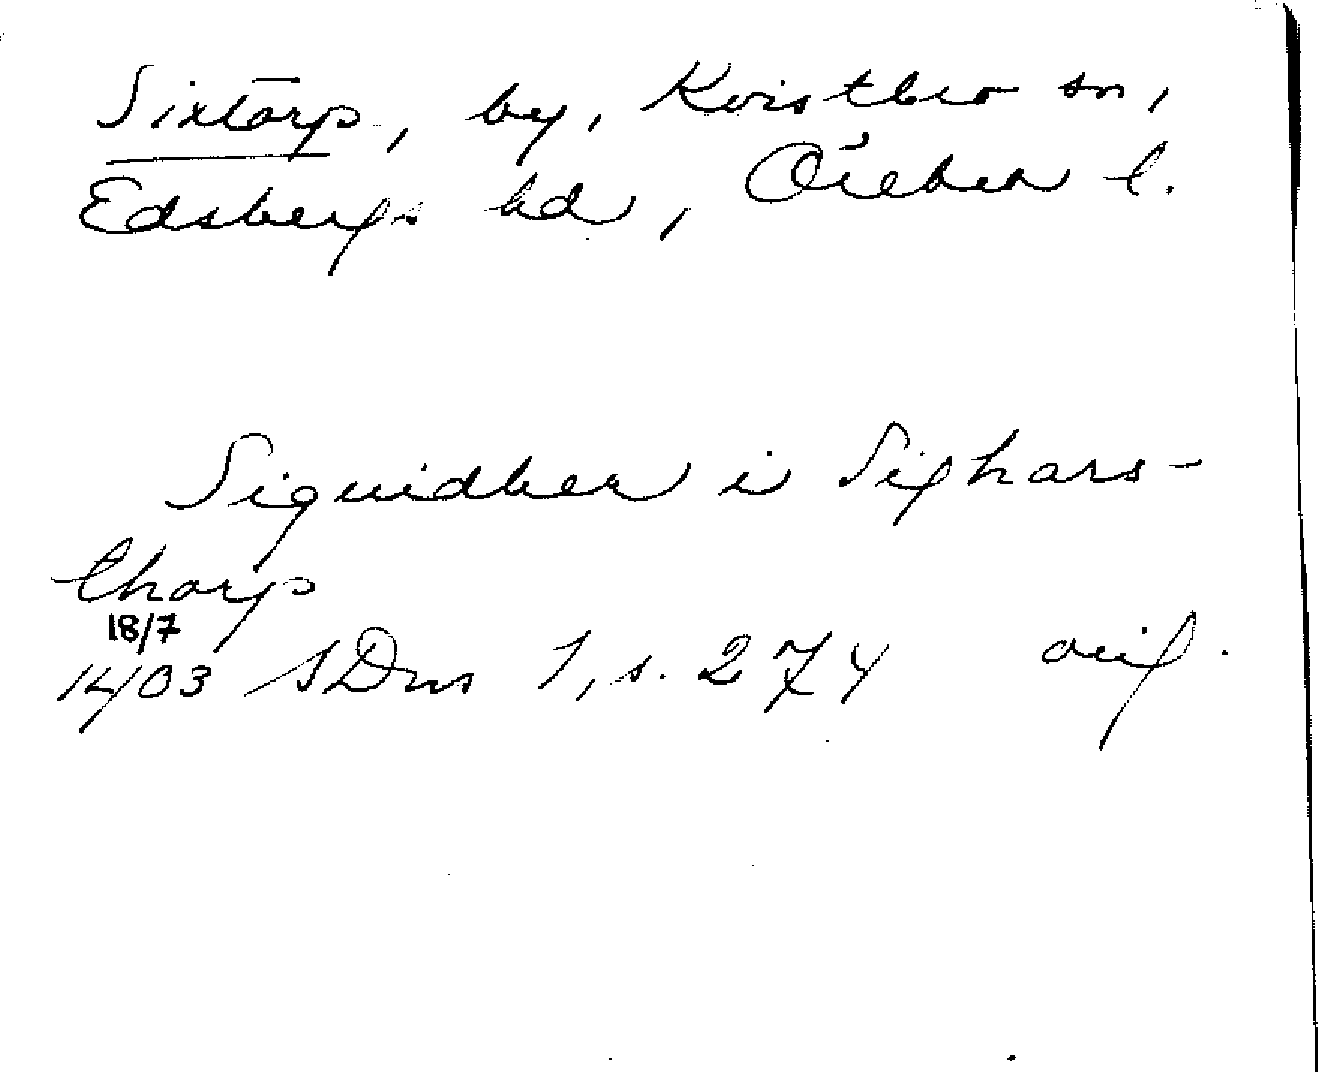 Sixtorp, by, Kvistbro sn,
Edsbergs hd, Örebro l.
Siguidber i Sighars-
thorp
18/7
1403 SDns 1, s. 274 orig.